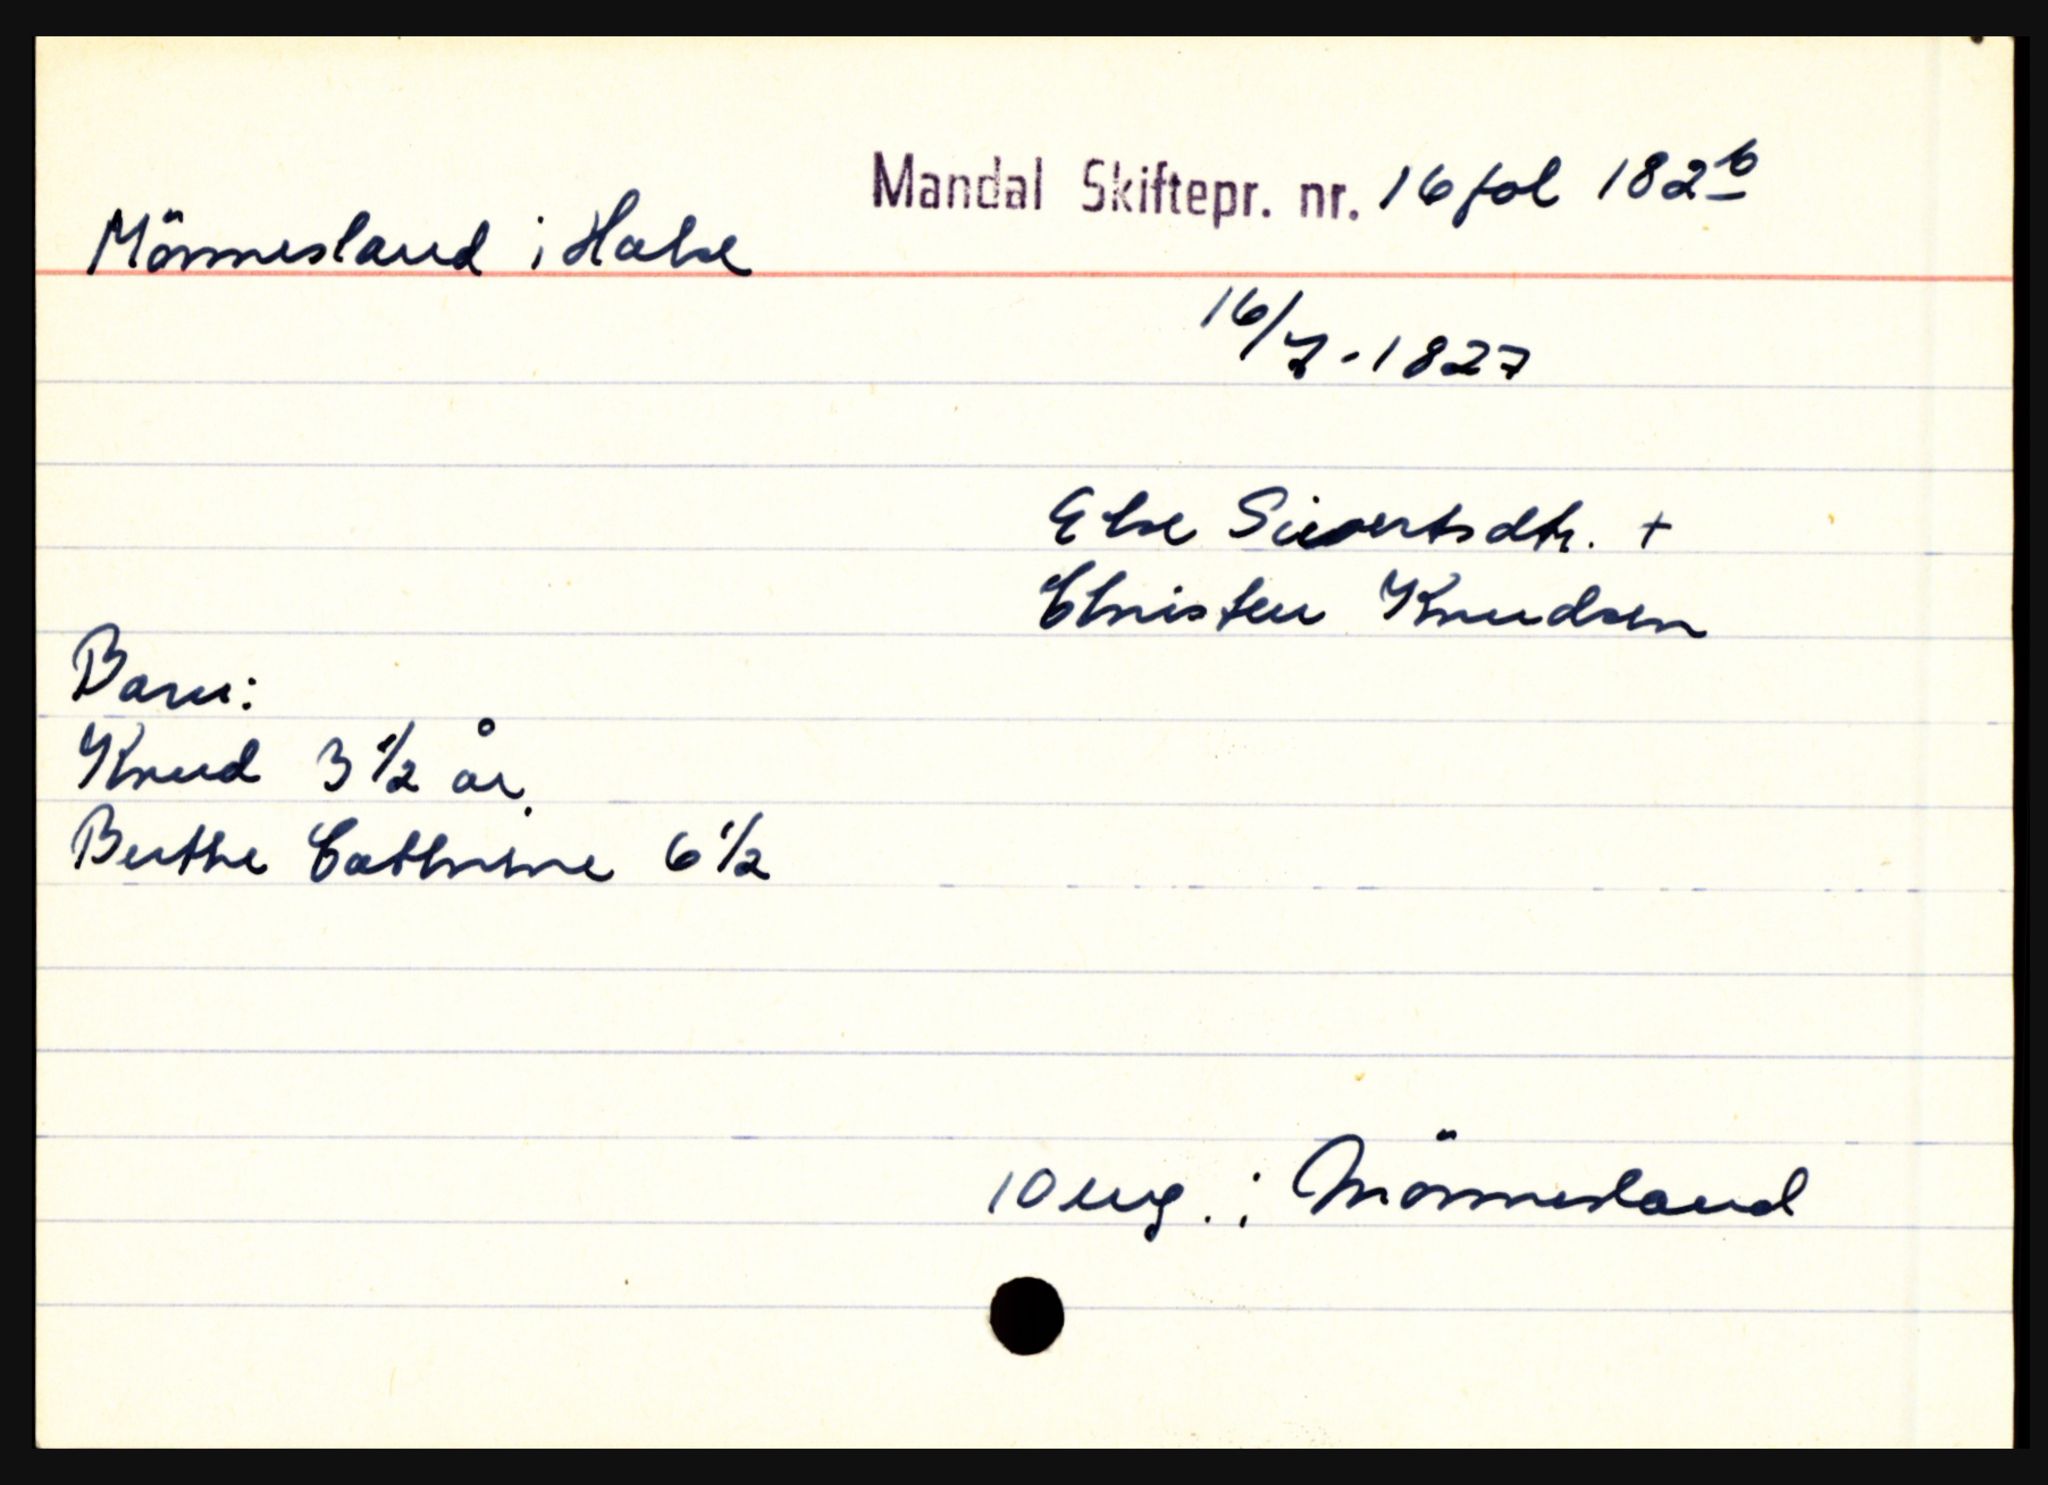 Mandal Skiftepr. nr. 16 fol 182b
Mönnesland i Halse
16/7-1827
Else Sivertsdtr. +
Christen Knudsen
Barn:
Knud 3 1/2 år.
Berthe Cathrine 6 1/2
10 eng. i Mönnesland